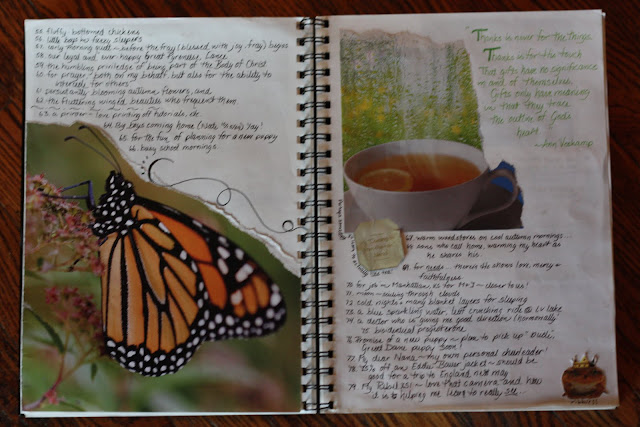 55. fluffy bottomed chickens
56. little boys in fleecy sleepers
57. early morning quiet - before the fray (blessed, with joy, fray) begins
58. our loyal and ever-happy Great Pyrenees, Lance
59. the humbling priviledge of being part of the Body of Christ
60. for prayer - both on my behalf, but also for the ability to
intercede for others
61. persistantly blooming autumn flowers, and
62. the fluttering winged beauties who frequent them
63. a printer - love printing off tutorials, etc
64. my boys coming home (Nate, ) Yay!
65. for the fun of planning for a new puppy
66. busy school mornings
Thanks is never for the things.
Thanks is for the touch
That gifts have no significance
in and of themselves.
Gifts only have meaning
in that they trace
the outline of God's
heart
~Ann Voskamp
67. warm woodstoves on cool autumn mornings...
68. sons who call home, warming my heart as
he shares his
69. for needs... therein He shows love, mercy &
faithfulness
70. for job - Manhattan, KS for M & J - closer to us!
71. moon - sailing through clouds
72. cold nights & many blanket layers for sleeping
73. a blue sparkling water, leaf crunching ride @ lake
74. a doctor who is giving me good direction (hormonally)
75. bioidentical progesterone
76. Promise of a new puppy - plan to pick up "Dude",
Great Dane puppy soon!
77. My dear Nana - my own personal cheerleader
78. 15% off an Eddie Bauer jacket - should be
good for a trip to England next May
79. My Rebel XSi - love that camera and how
it is helping me learn to really see...